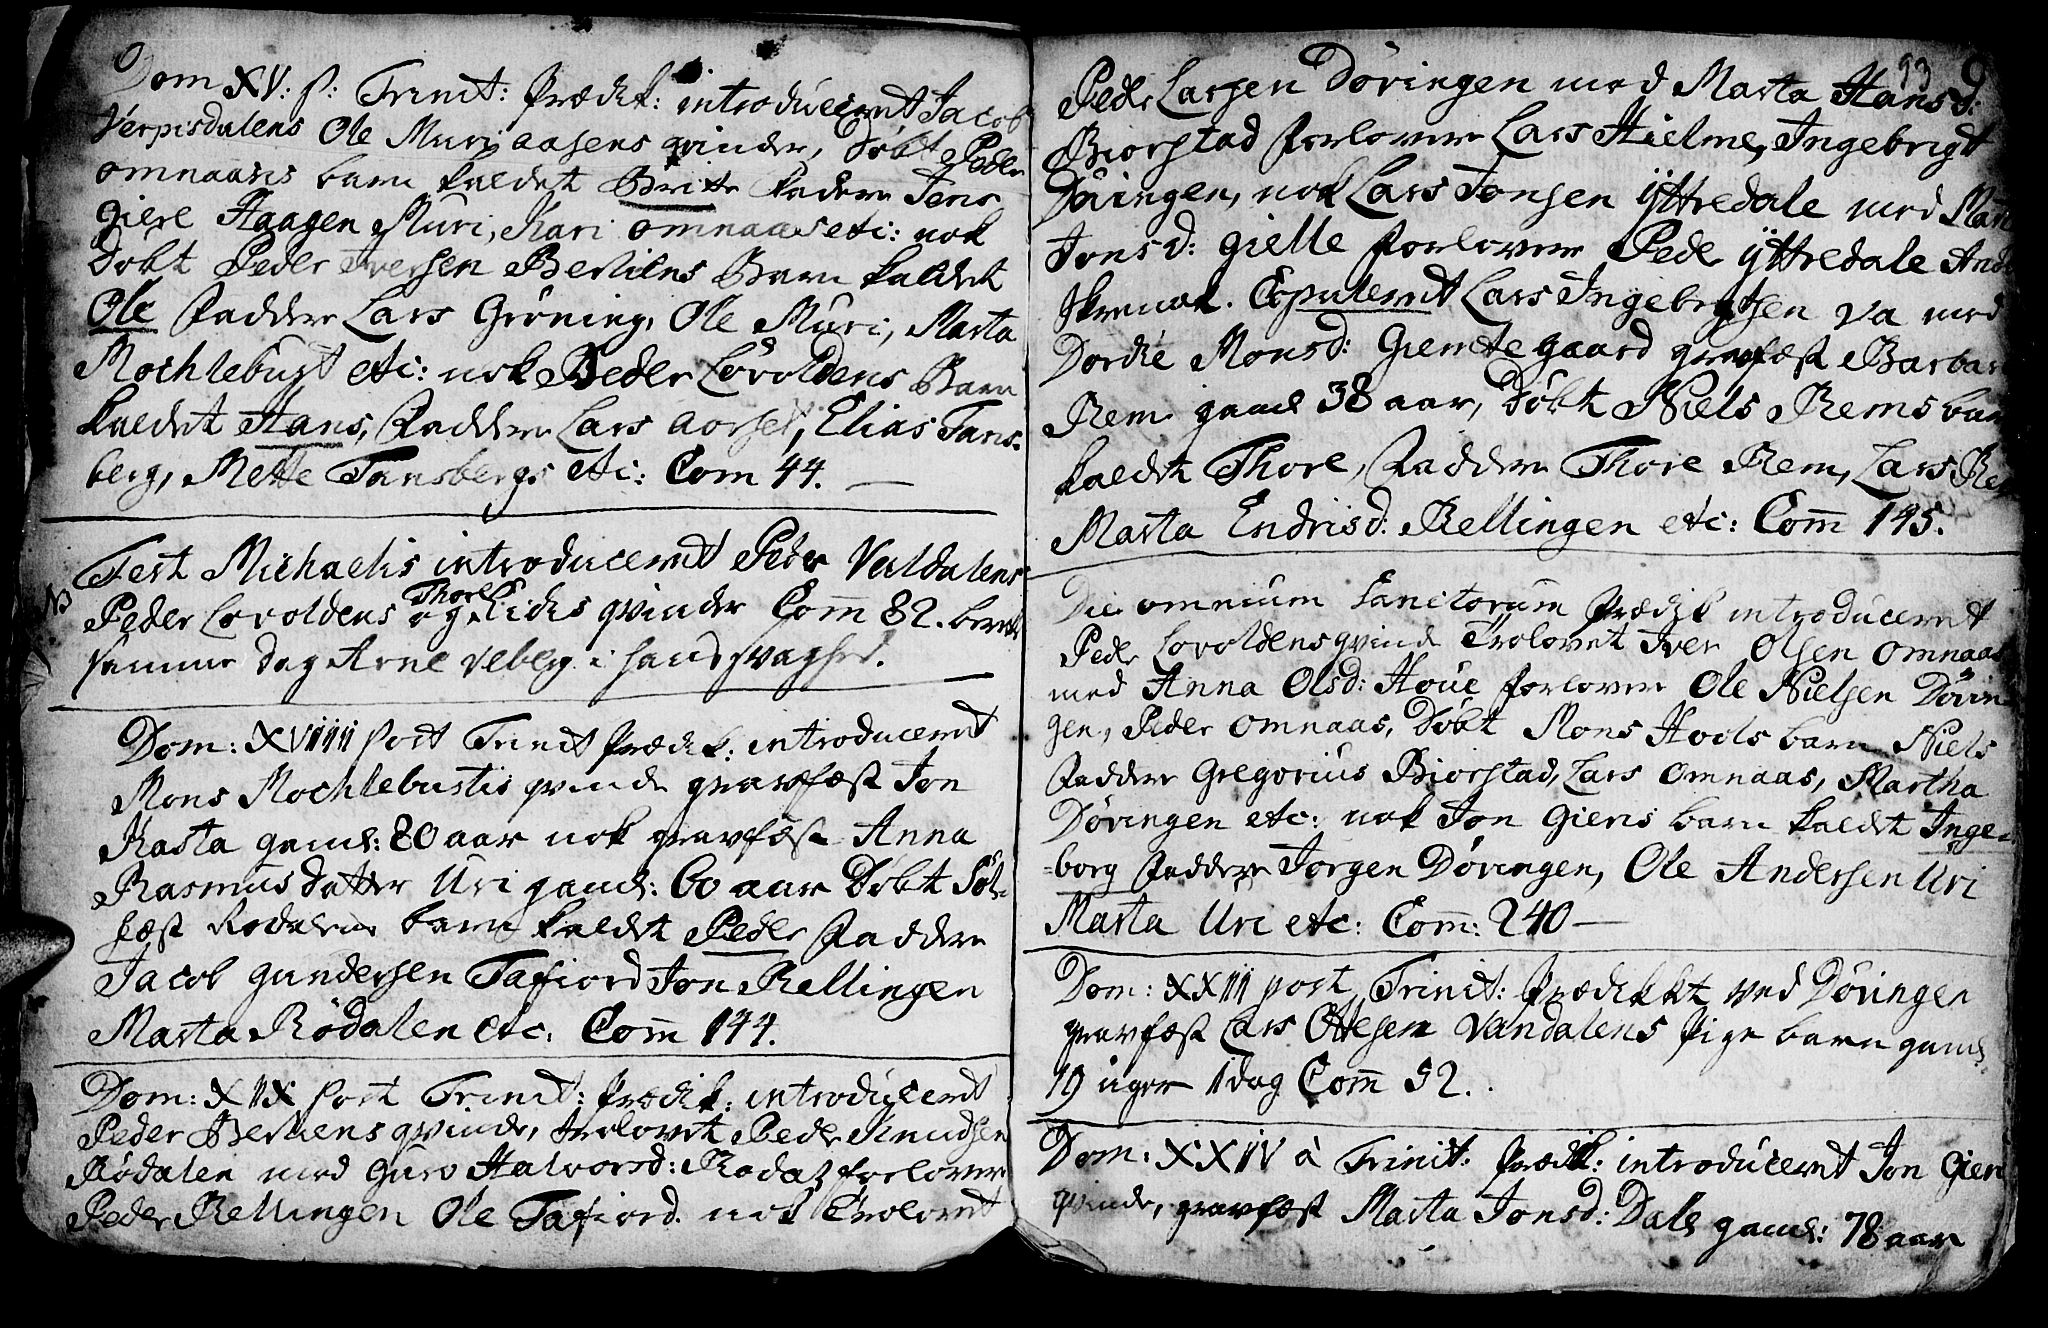 Dom XV: p: Trinit: Prædik: introduceret Jacob
Verpisdalens Ole Muri aasens qvinder, Döbt Peder
omnaases barn kaldet Britte faddere Jens
Giere Haagen Muri, Kari omnaas etc: nok
Döbt Peder Iversen Berliens Barn kaldet
Ole Faddere Lars Gröning, Ole Muri, Marta
Mochlebust etc: nok Peder Lövoldens Barn
kaldet Hans, Faddere Lars aorset, Elias Tans-
berg, Mette Tansbergs etc: Com 44.
NB
Fest Michaelis introduceret Peder Valdalens
Peder Lovoldens og Thore Eides qvinder Comm 82. beret
samme dag Arne Veberg i hans svaghed.
Dom: XVIIII post Trinit Prædik: introduceret
Mons Mochlebustis qvinde gravfæst Jon
Rasta gaml: 80 aar nok gravfæst Anna
Rasmusdatter Uri gaml: 60 aar Döbt Söl-
fæst Rodalens barn kaldet Peder Faddere
Jacob Gundersen Tafiord Jon Rellingen
Marta Rödalen etc: Comm 144.
Dom: XIX post Trinit: Prædik: introduceret
Peder Berliens qvinde, trolovet Peder Knudsen
Rödalen med Guro Halvorsd: Rodal forlovere
Peder Rellingen Ole Tafiord. nok Trolovet
93
Peder Larsen Döringen med Marta Hansd:
Biorstad forlovere Lars Hielme, Ingebrigt
Döringen, nok Lars Jonsen ÿttredale med Mart
Jonsd: Gielle forlovere Peder ÿttredale And
skrenak. Copuleret Lars Ingebrigtsen Va med
Dordie Monsd: Giemtegaard gravfæst Barbar
Rem gaml 38 aar, Döbt Niels Rems barn
kaldet Thore, Faddere Thore Rem, Lars Re
Marta Endrisd: Rellingen etc: Comm 145.
Die omnium Sanctorum Prædik introduceret
Peder Lovoldens qvinde Trolovet Iver Olsen omnaas
med Anna Olsd: Houe forlovere Ole Nielsen Dörin-
gen, Peder omnaas, Döbt Mons Hools barn Niels
Faddere Gregorius Biorstad, Lars omnaas, Martha
Döringen etc: nok Jon Gieris barn kaldet Inge-
-borg Faddere Jörgen Döringen, Ole Andersen Uri
Marta Uri etc: Comm: 240
Dom: XXIII post Trinit: Prædikket ved Döringen
gravfæst Lars Olesen Vandalens Pige barn gaml
19 uger 1 dag Comm 52.
Dom: XXIV à Trinit: Prædik: introduceret Jon Gieri
qvinde, gravfæst Marta Jonsd: Dale gaml: 78 aar